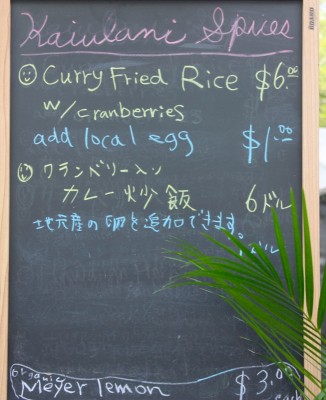 Kaiulani Spices
Curry Fried Rice $6.00
w/cranberries
add local egg $1.00
クランベリー入り
カレー炒飯 6ドル
地元産の卵を追加できます。
1ドル
organic
Meyer lemon $3.00
each